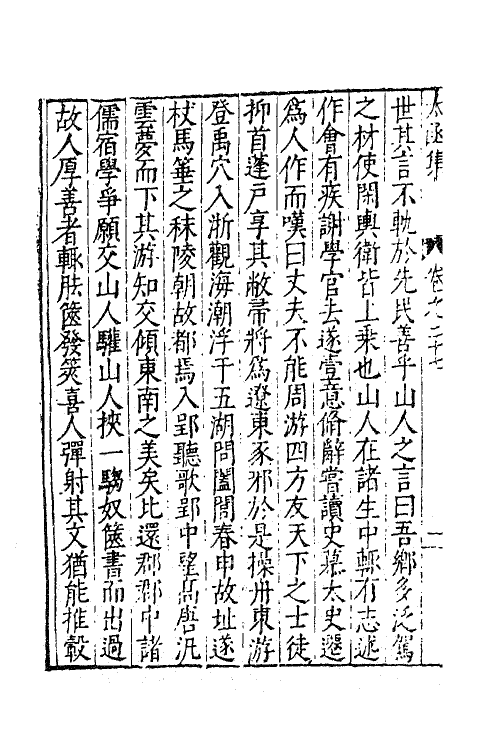 太函集　卷之二十七　二
世其言不軌於先民善乎山人之言曰吾鄉多泛駕
之材使閑輿衛皆上乘也山人在諸生中輒有志述
作會有疾謝學官去遂壹意脩辭嘗讀史慕太史遷
爲人作而嘆曰丈夫不能周游四方友天下之士徒
抑首蓬戸享其敝帚將爲遼東豕邪於是操舟東游
登禹穴入浙觀海潮浮于五湖問闔閭春申故址遂
杖馬箠之秣陵朝故都焉入郢聽歌郢中望高唐汎
雲夢而下其游知交傾東南之美矣比還郡郡中諸
儒宿學爭願交山人驩山人挾一騶奴篋書而出過
故人厚善者輒胠篋發筴喜人彈射其文猶能推轂